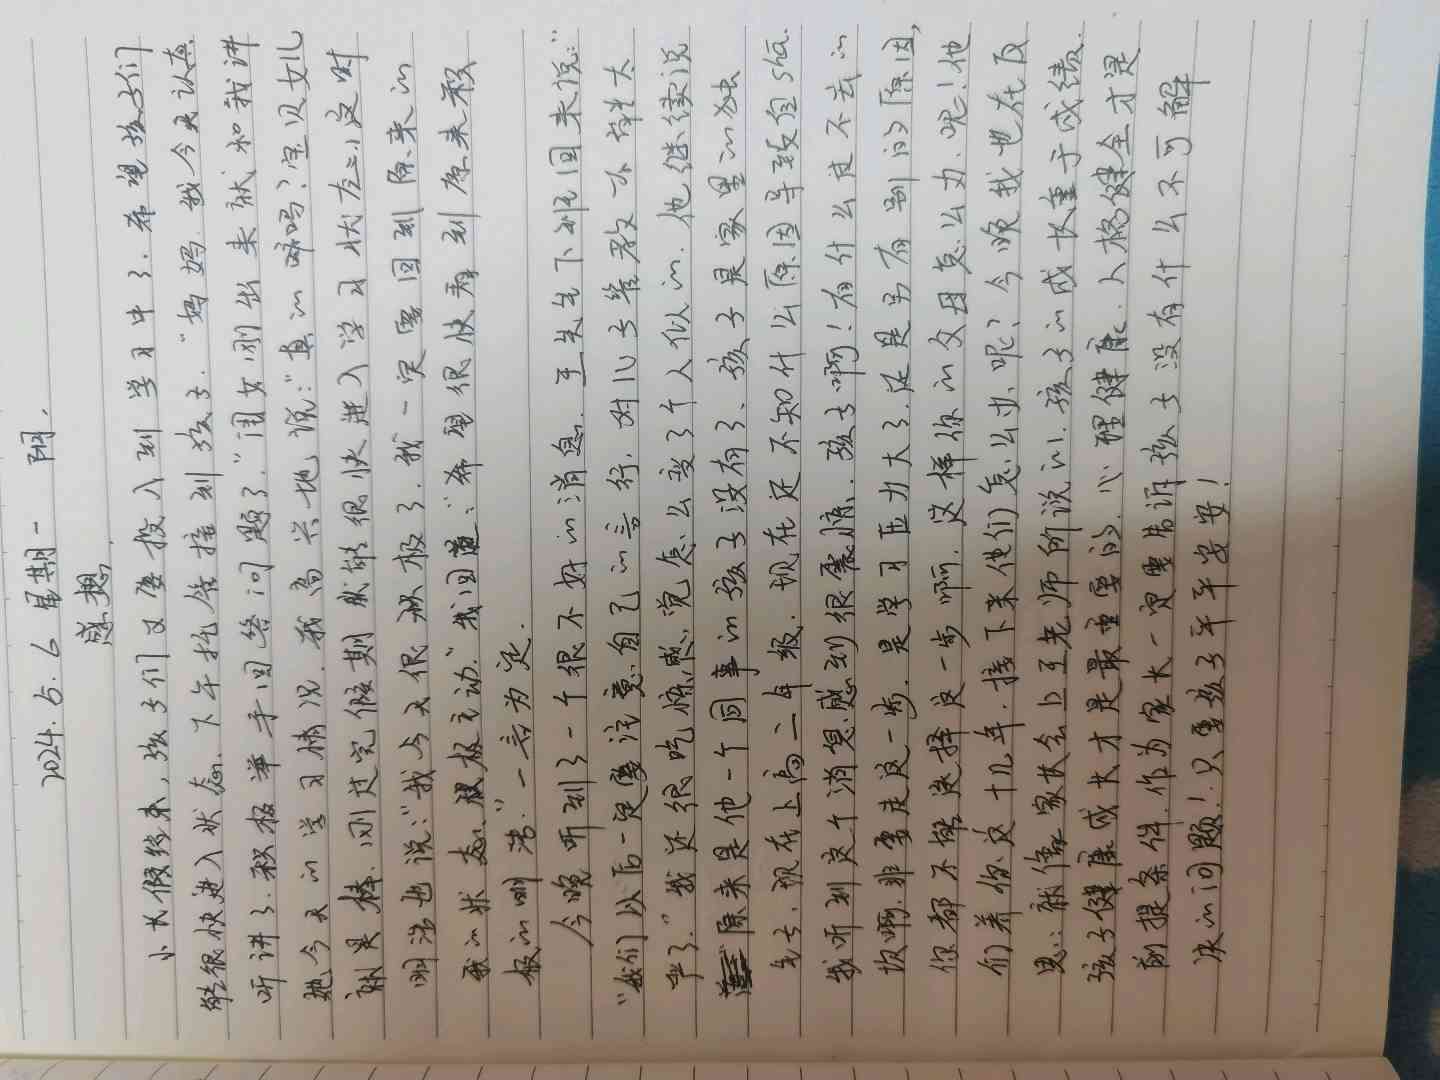 2024.5.6 星期一 阴.
感想
小长假结束,孩子们又要投入到学习中了.希望孩子们
能很快进入状态.下午托管接到孩子."妈妈.我今天认真
听讲了.积极举手回答问题了."闺女刚出来就和我讲
她今天的学习情况.我高兴地说:"真的嘛吗?宝贝女儿
就是棒.刚过完假期就能很快进入学习状态".这时
明浩也说:"我今天很积极了.我一定要回到原来的
我的状态.积极主动."我回道:"希望很快看到原来积
极的明浩."一言为定.
今晚听到了一个很不好的消息.王先生下班回来说:"
"我们以后一定要注意自己的言行.对儿子管教不能太
严了."我还很吃惊.想.说怎么变了个人似的.他继续说
原来是他一个同事的孩子没有了、孩子是家里的独
生子.现在上高二年级.现在还不知什么原因导致自shā.
我听到这个消息感到很震惊.孩子啊!有什么过不去的
坎啊.非要走这一步.是学习压力大了.还是另有别的原因,
你都不能选择这一步啊.这样你的父母怎么办呢!他
们养你这十几年.接下来他们怎么办呢?今晚我也在反
思:就像家长会上王老师所说的.孩子的成长重于成绩.
孩子健康成长才是最重要的.心理健康.人格健全才是
前提条件.作为家长一定要告诉孩子没有什么不可解
决的问题!只要孩子平平安安!